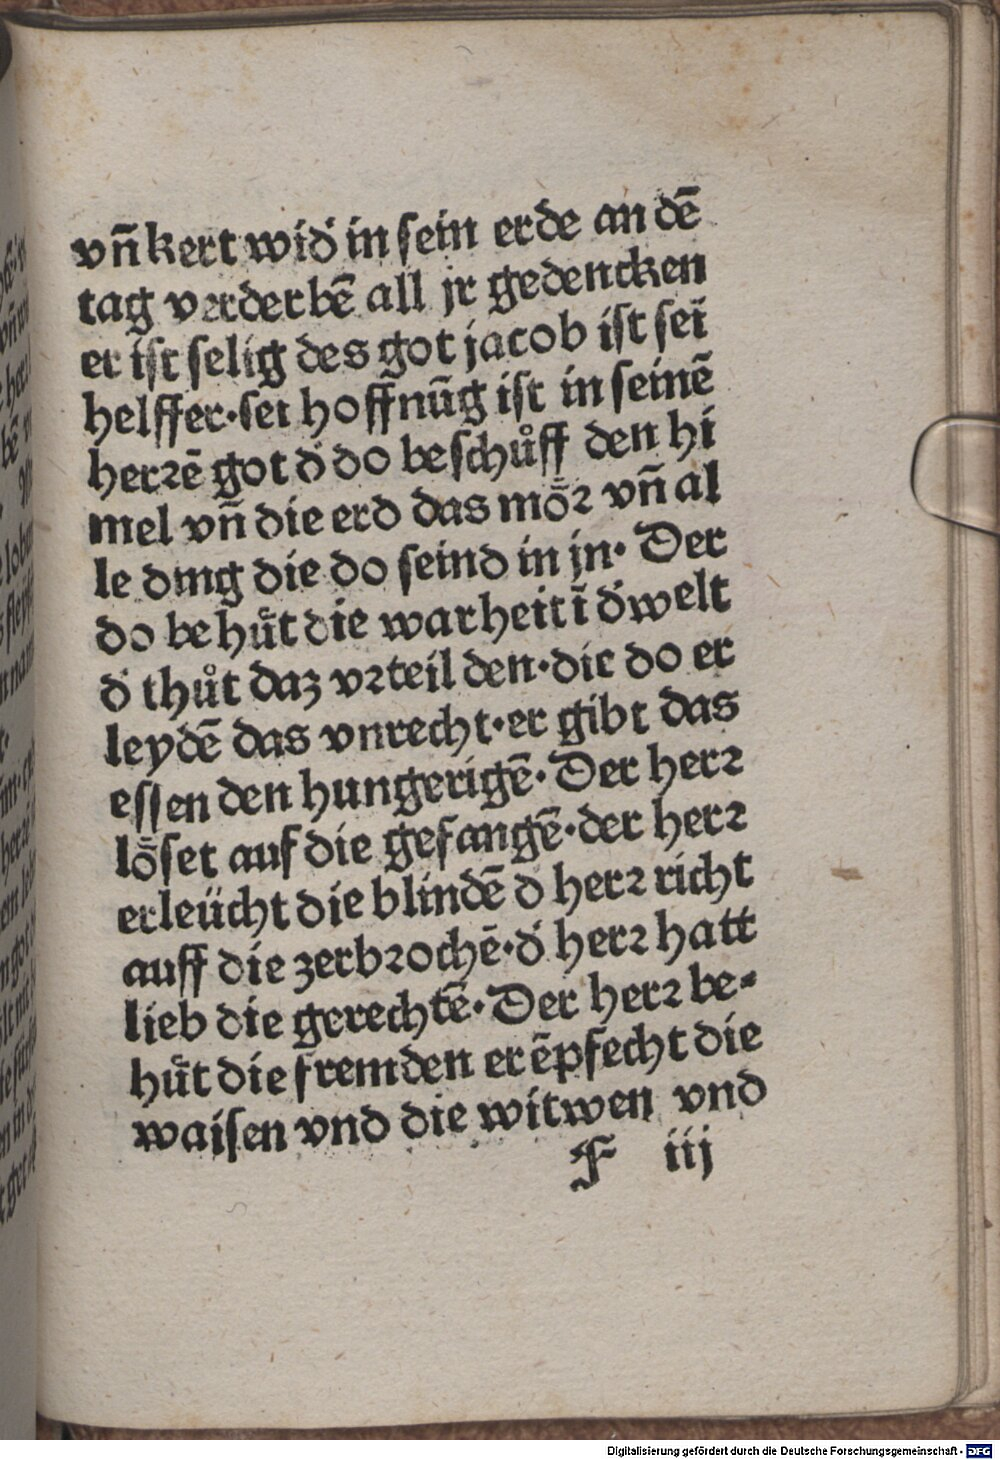 vñ kert wid̕ in sein erde an dē
tag verderbē all jr gedencken
er ist selig des got jacob ist seī
helffer·sei hoffnūg ist in seinē
herꝛē got d̕ do beschůff den hi
mel vñ die erd das mȫꝛ vñ al
le ding die do seind in jn· Der
do behuͤt die warheit ī d̕ welt
d̕ thůt daz vꝛteil den·die do er
leydē das vnrecht·er gibt das
essen den hungerigē· Der herꝛ
löset auf die gefangē·der herꝛ
erleücht die blindē d̕ herꝛ richt
auff die zerbꝛochē·d̕ herꝛ hatt
lieb die gerechtē· Der herꝛ be⸗
huͤt die fremden er ēpfecht die
waisen vnd die witwen vnd
F iij
Digitalisierung gefördert durch die Deutsche Forschungsgemeinschaft · DFG